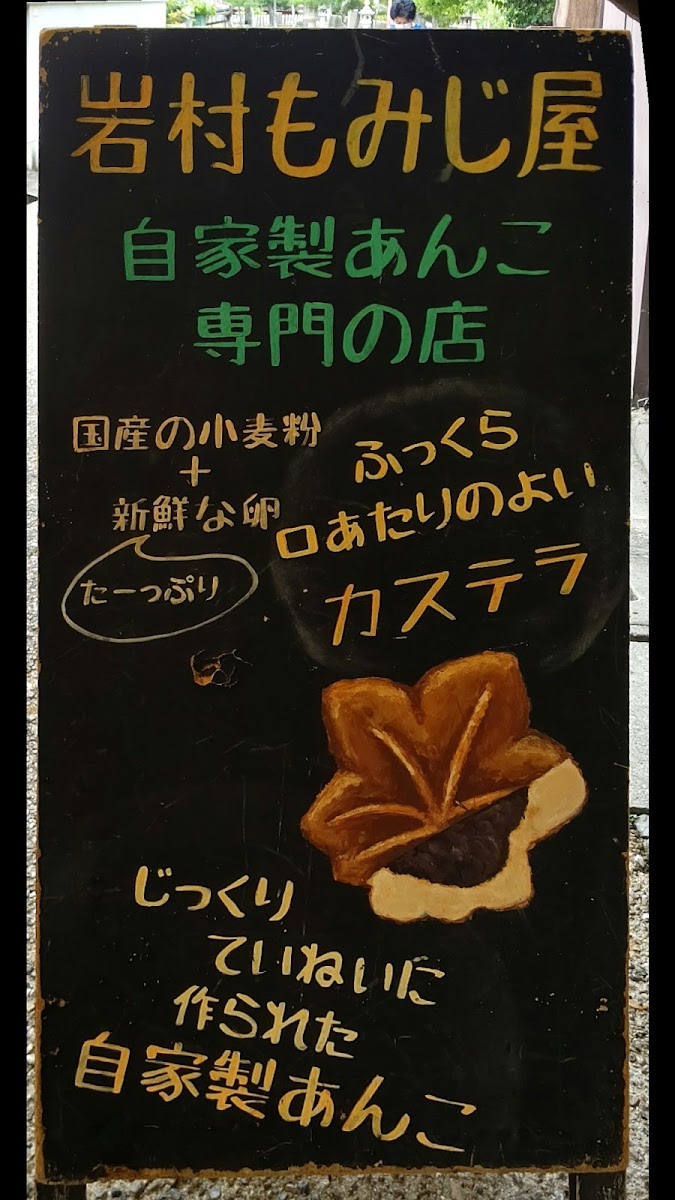 岩村もみじ屋
自家製あんこ
専門の店
国産の小麦粉
+
新鮮な卵
たーっぷり
ふっくら
口あたりのよい
カステラ
じっくり
ていねいに
作られた
自家製あんこ